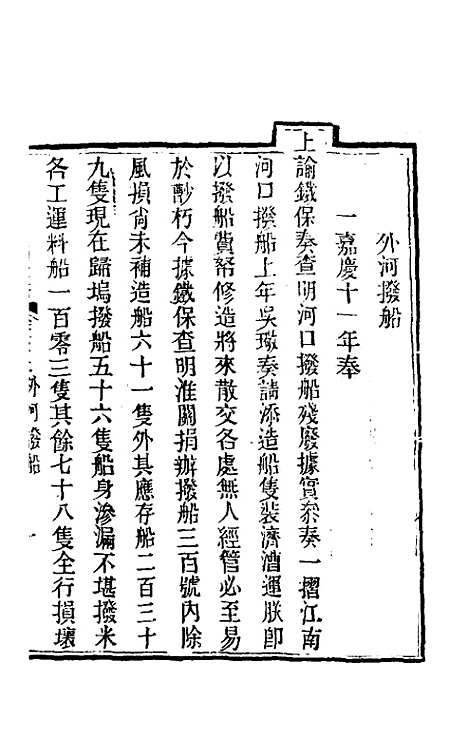 外河撥船
一嘉慶十一年奉
上諭鐵保奏查明河口撥船殘廢據實叅奏一摺江南
河口撥船上年吳璥奏請添造船隻裝濟漕運朕卽
以撥船費帑修造將來散交各處無人經管必至易
於朽今據鐵保查明淮關捐辦撥船三百號內除
風損尙未補造船六十一隻外其應存船二百三十
九隻現在歸塢撥船五十六隻船身滲漏不堪撥米
各工運料船一百零三隻其餘七十八隻全行損壞
外河撥船
一